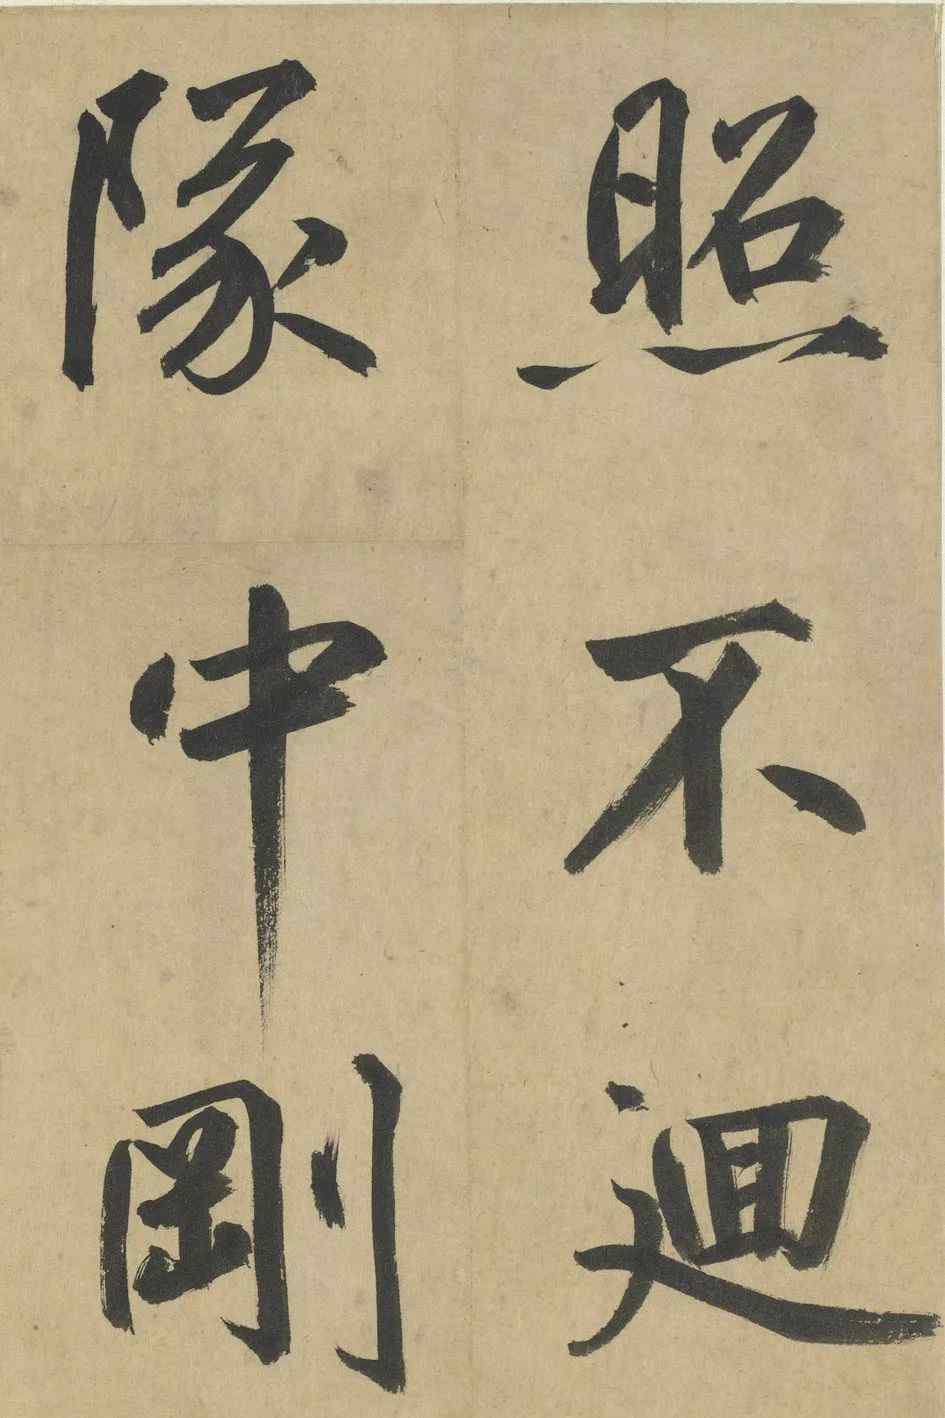 照不迴
隊中剛